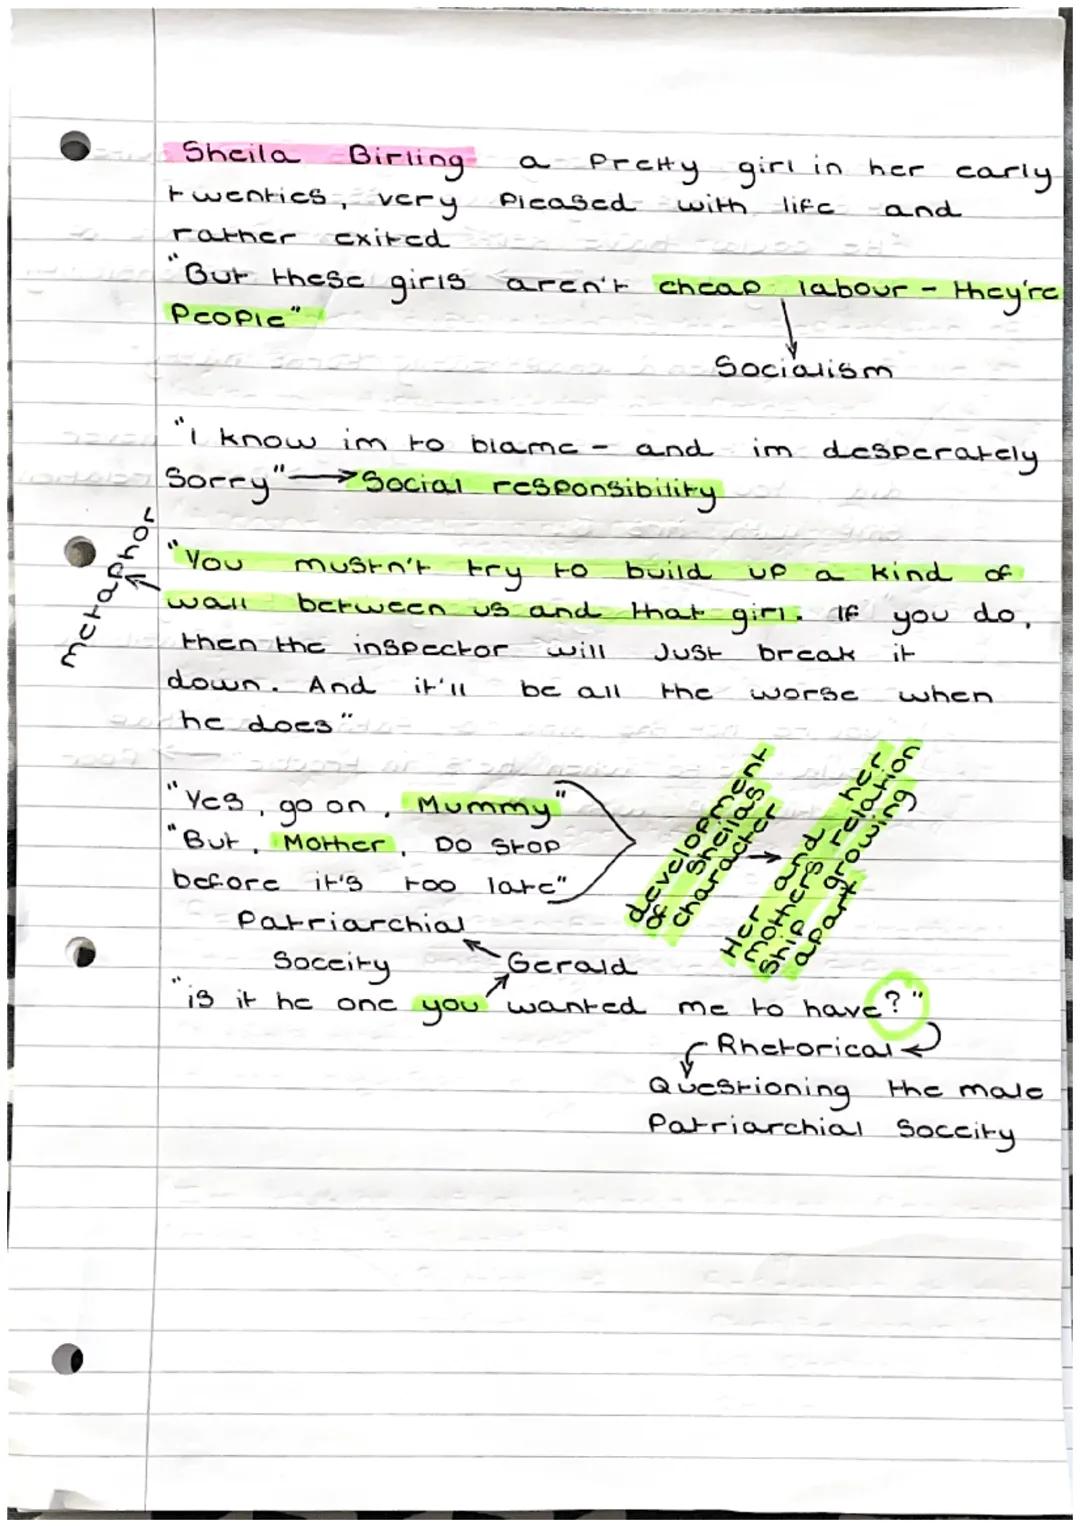 Sheila Birling a Pretty girl in her early
twenties, very pleased with life and
rather exited
"But these girls aren't cheap labour - they're
People"
Socialism
"I know im to blame - and im desperately
Sorry" → Social responsibility
metaphor
"You mustn't try to build up a kind of
wall between us and that girl. If you do,
then the inspector will Just break it
down. And it'll be all the worse when
he does"
"Yes, go on, Mummy"
"But, Mother, DO Stop
before it's too late"
development
of Sheilas
character
→
Her and her
mothers relation
ship growing
apart
Patriarchial
Soceity
Gerald
"is it he one you wanted me to have?"
Rhetorical
Questioning the male
Patriarchial Soceity